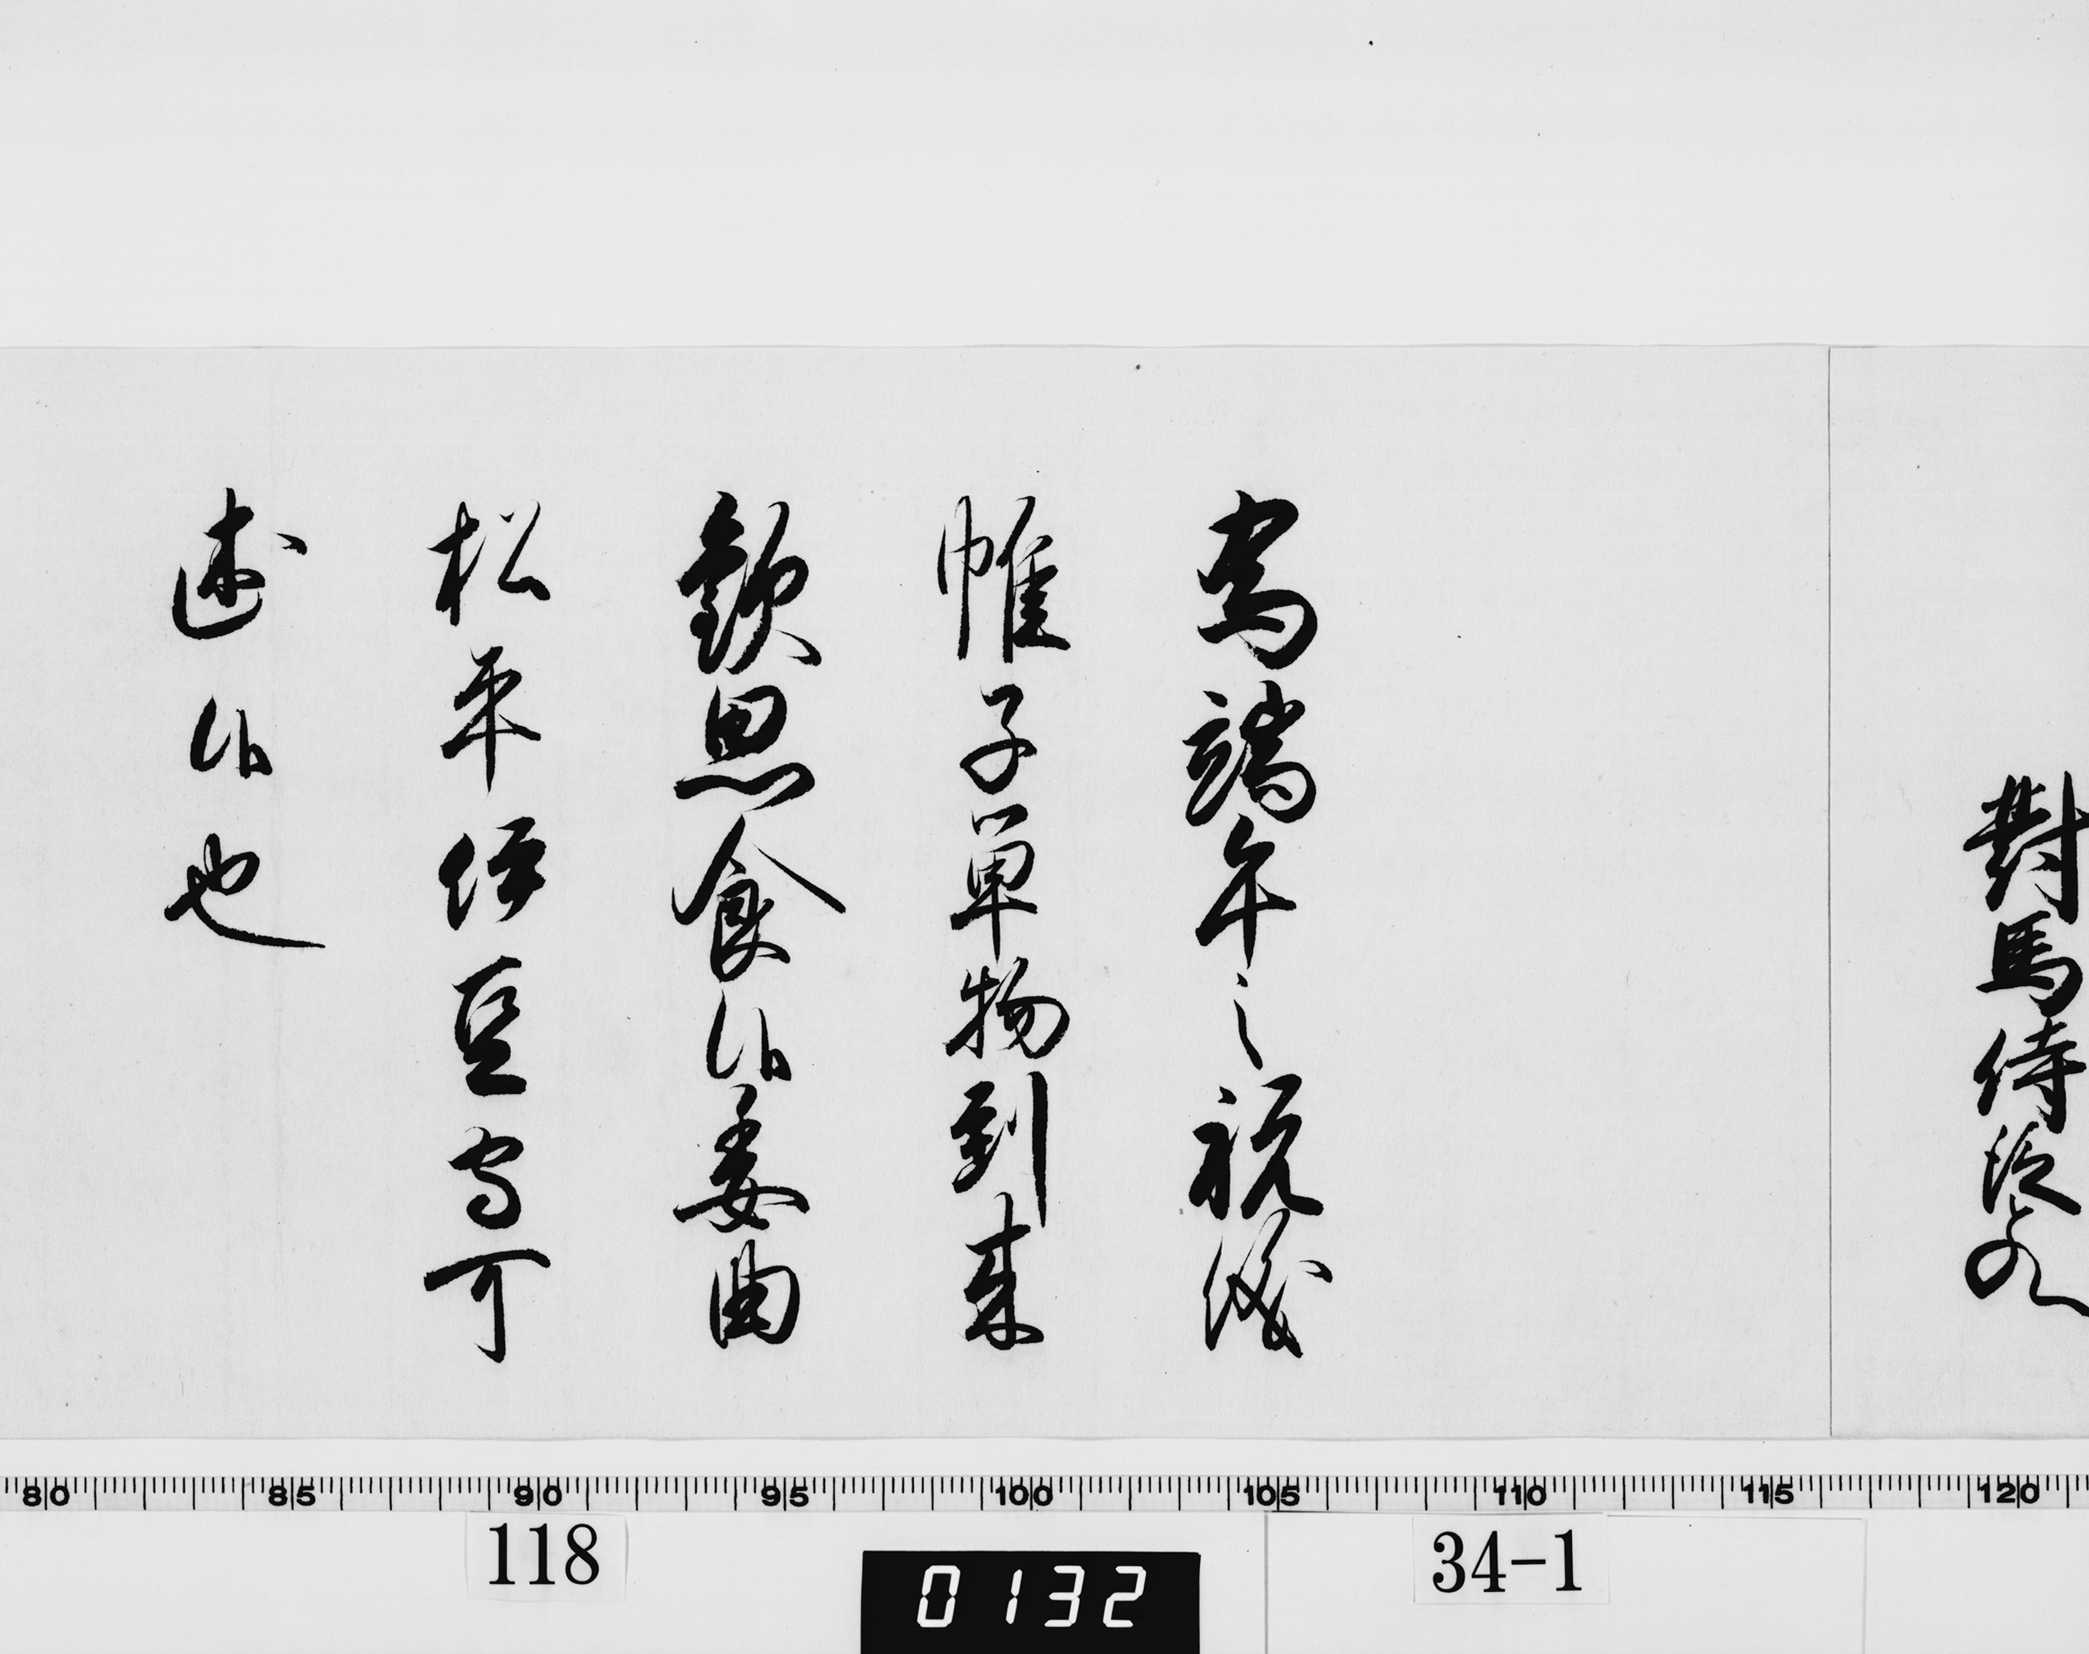 對馬侍從殿
為端午之祝儀
帷子單物到来
歓思食候委曲
松平伊豆守可
述候也
80 85 90 95 100 105 110 115 120
118
0132
34-1